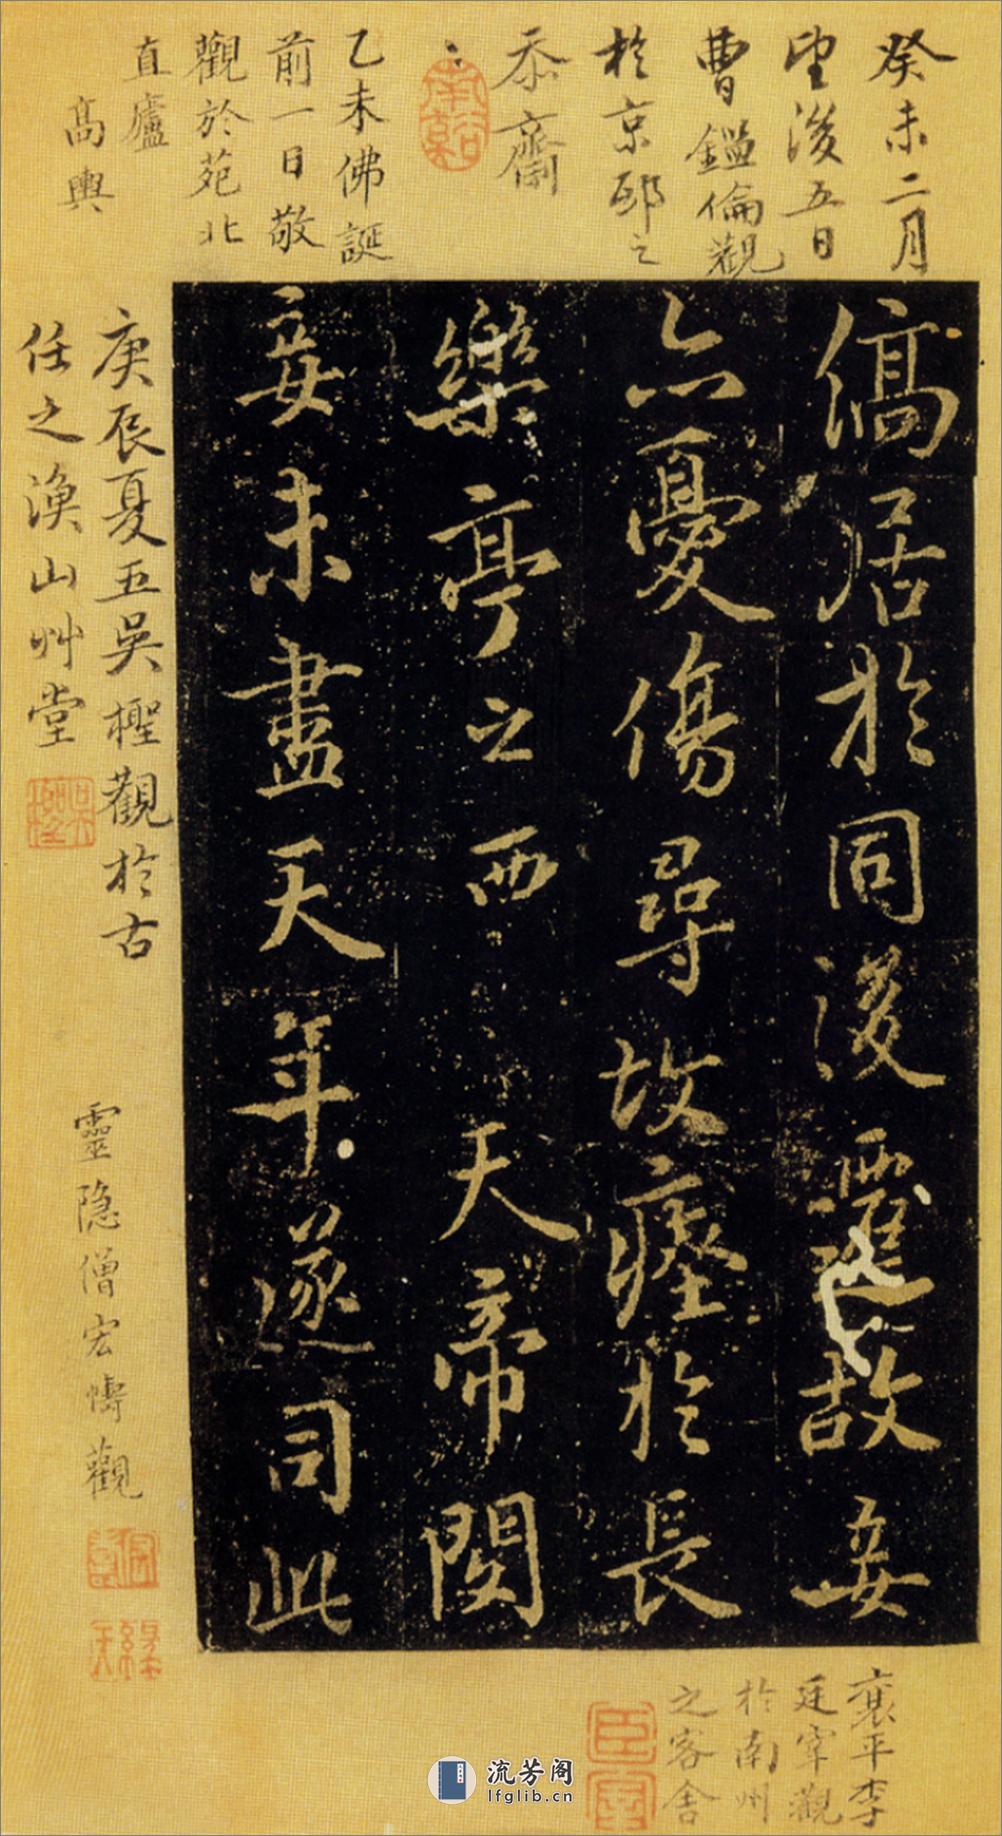 癸未二月
望後五日
曹鑑倫觀
於京邸之
忝齋
乙未佛誕
前一日敬
觀於苑北
直廬
高輿
僑居於同後遷故妾
亡憂傷尋故瘞於長
樂亭之西天帝閔
妾未盡天年遂司此
庚辰夏五吳檉觀於古
任之漁山艸堂
靈隱僧宏燾觀
襄平李
廷宰觀
於南州
之客舍
流芳阁
lfglib.cn